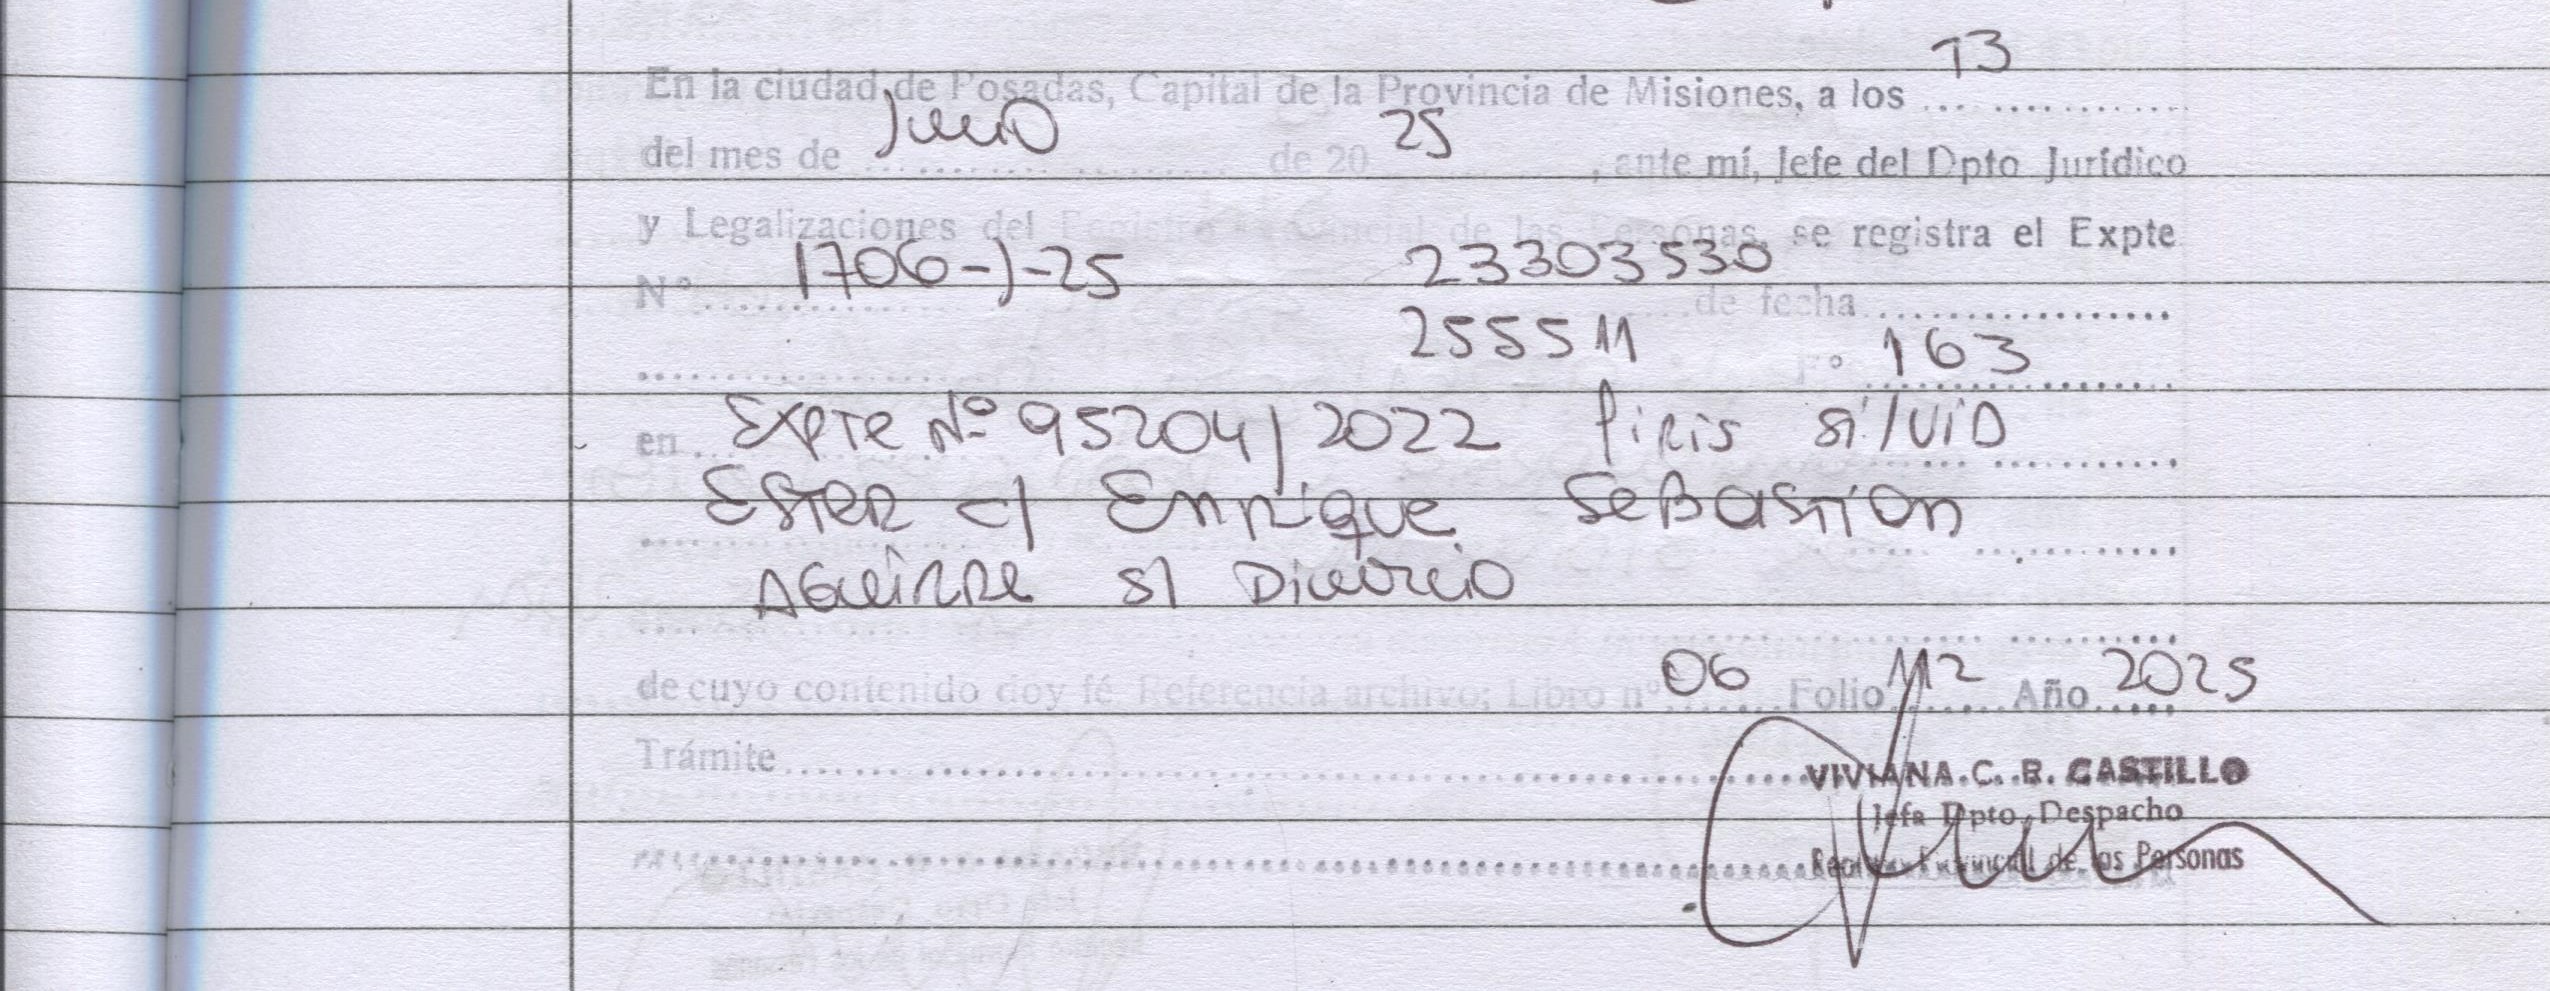 En la ciudad de Posadas, Capital de la Provincia de Misiones, a los 13
del mes de Junio de 20 25, ante mí, Jefe del Dpto Jurídico
y Legalizaciones del Registro Provincial de las Personas, se registra el Expte
Nº 1706-J-25 23303530 de fecha
255511 Fº 163
en Expte Nº 95204/2022 Piris Silvia
Ester c/ Enrique Sebastian
Aguirre s/ Divorcio
de cuyo contenido doy fé Referencia archivo; Libro nº 06 Folio 112 Año 2025
Trámite
VIVIANA C. B. CASTILLO
Jefa Dpto. Despacho
Registro Provincial de las Personas